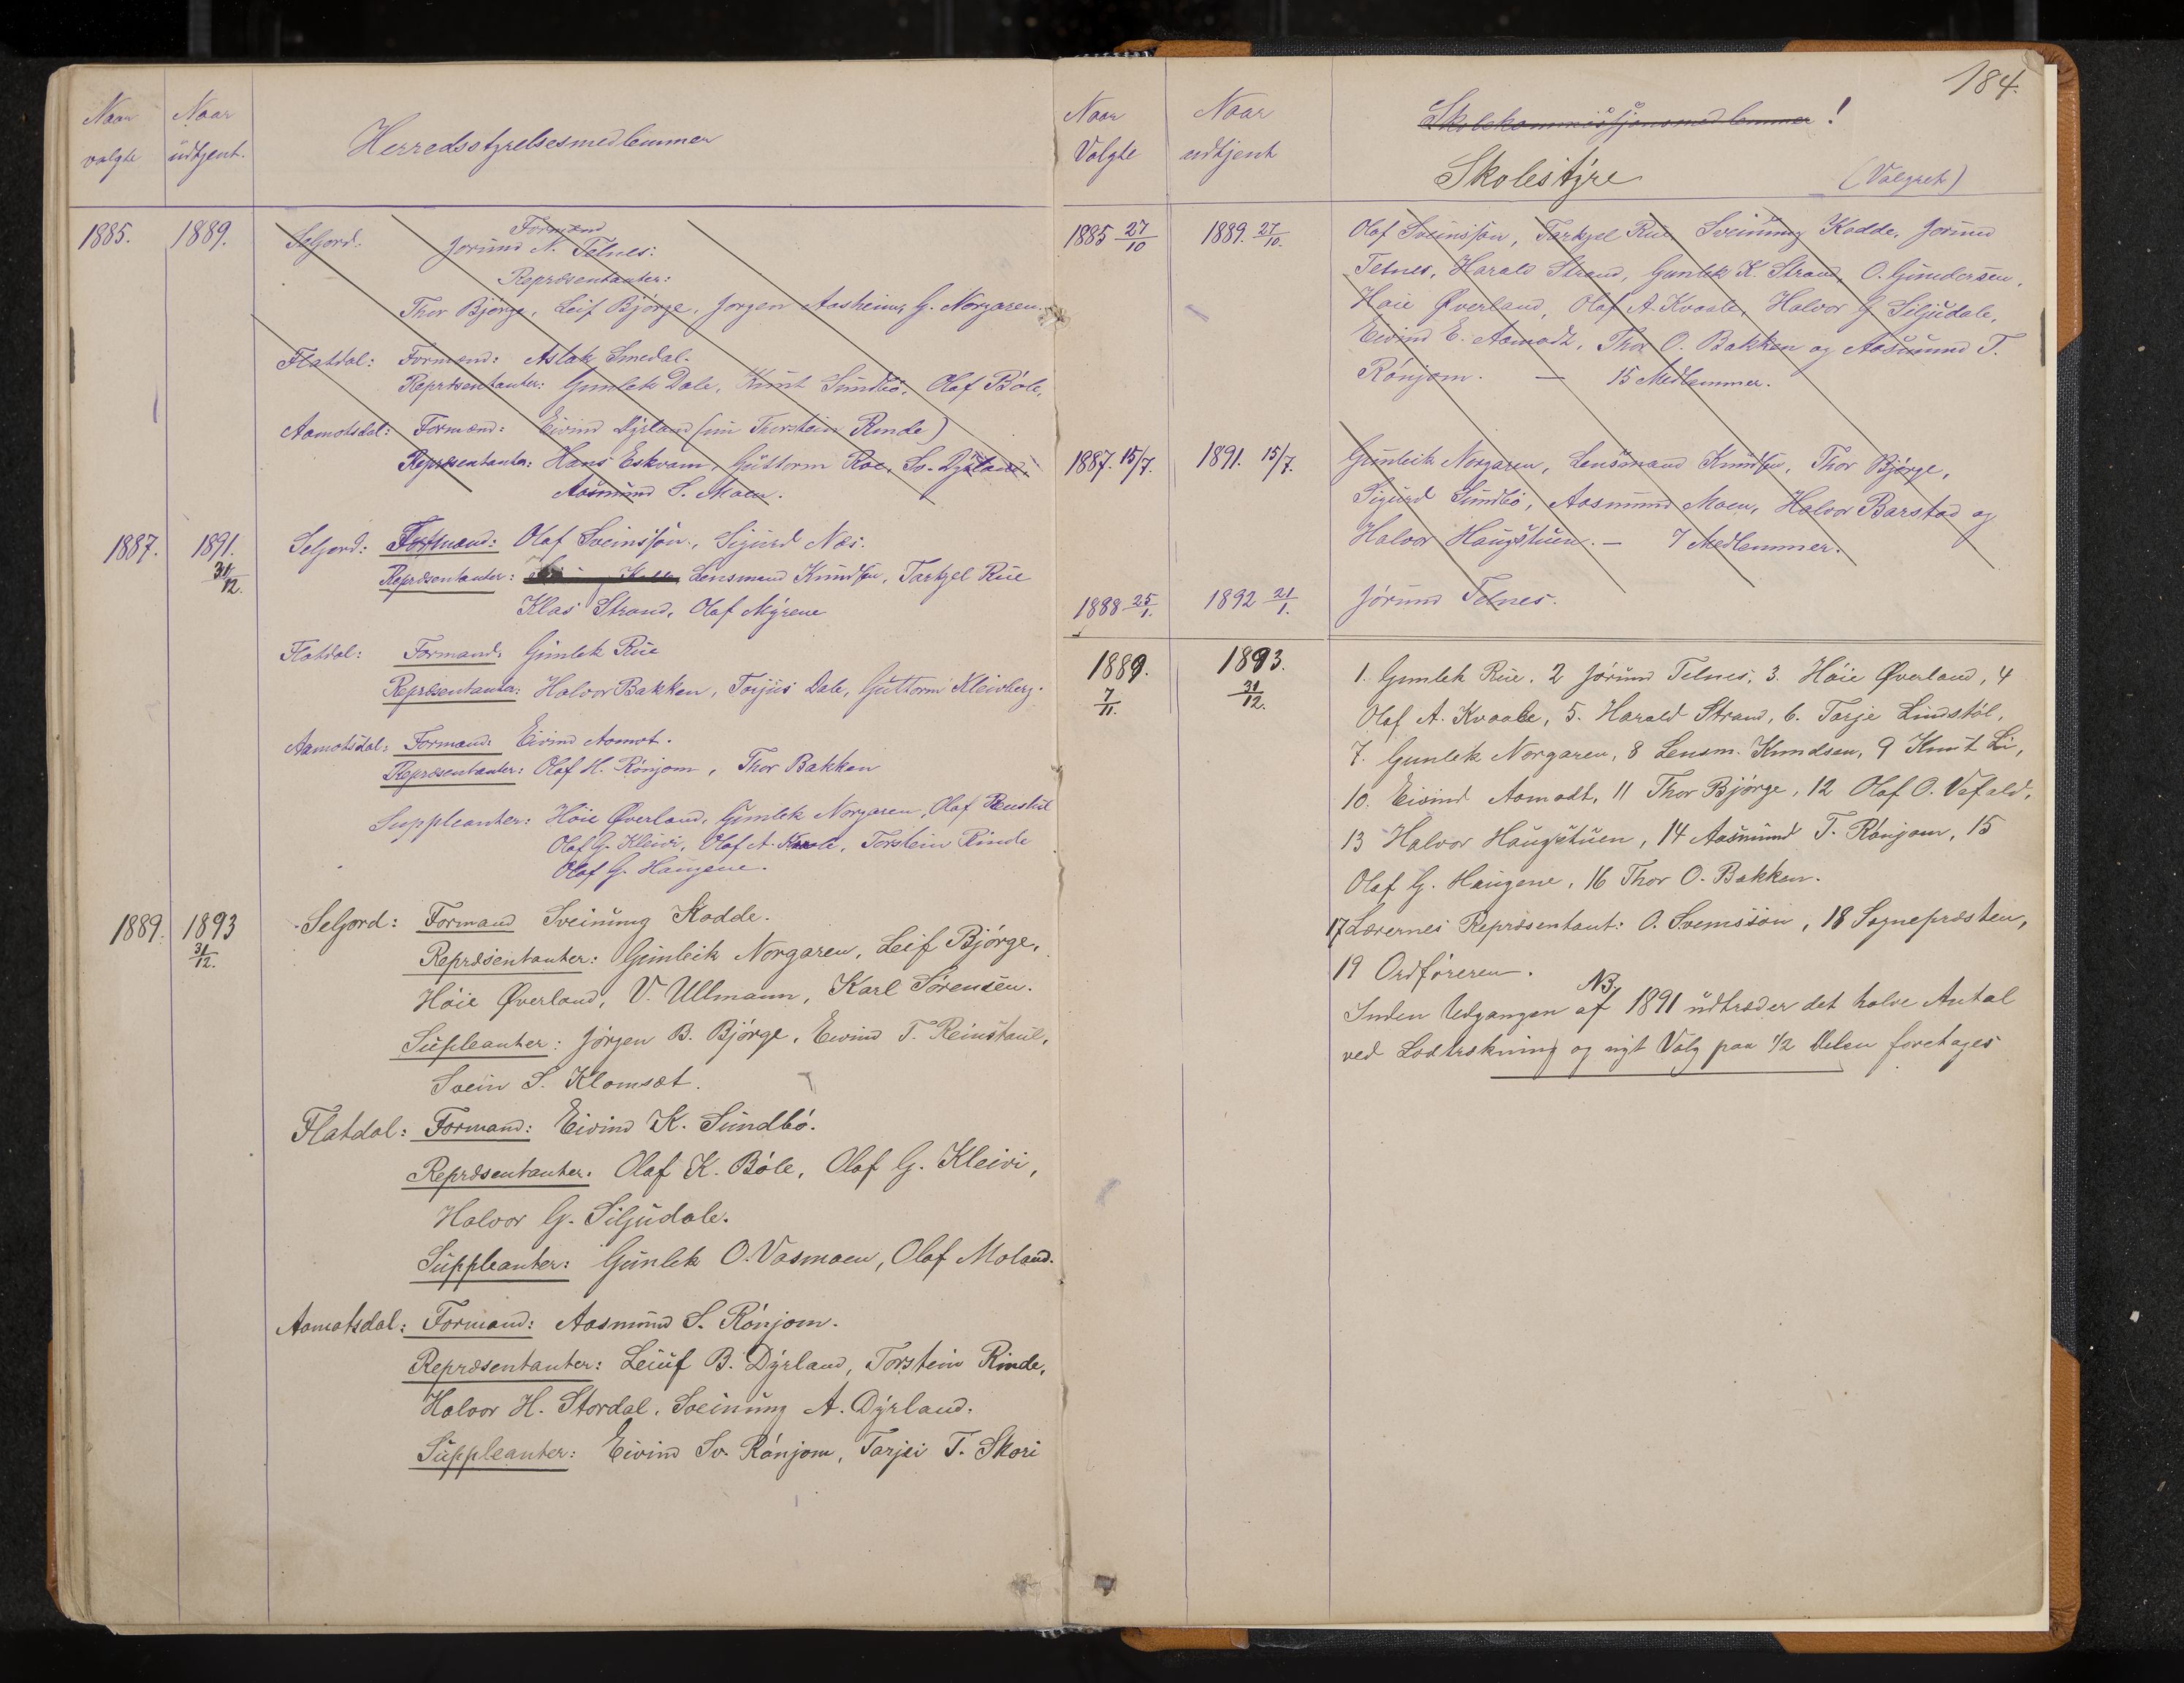 Naar valgte
Naar udtjent.
Herredsstyrelsesmedlemmer
1885. 1889. Seljord. Formænd
Jorund N. Telnes:
Repræsentanter:
Thor Bjørge, Leif Bjørge, Jørgen Aasheim, G. Norgaren.
Flatdal: Formænd: Aslak Smedal.
Repræsentanter: Gunlek Dale, Knut Sundbø, Olaf Bøle,
Aamotsdal: Formænd: Eivind Dyrland (nu Thorstein Rinde)
Repræsentanter: Hans Eskvam, Guttorm Roe, Sv. Dyrland,
Aasmund S. Moen.
1887. 1891. 31/12. Seljord: Formænd: Olaf Sveinssøn, Sigurd Næs.
Repræsentanter: Lensmand Knudsen, Tarkjel Rue
Klas Strand, Olaf Myrene
Flatdal: Formand: Gunlek Rue
Repræsentanter: Halvor Bakken, Torjus Dale, Guttorm Kleivberg.
Aamotsdal: Formand: Eivind Aamot.
Repræsentanter: Olaf H. Rønjom, Thor Bakken
Suppleanter: Høie Øverland, Gunlek Norgaren, Olaf
Olaf G. Kleivi, Olaf A. Kvaale, Torstein Rinde
Olaf G. Haugene.
1889. 1893 31/12. Seljord: Formand Sveinung Kodde.
Repræsentanter: Gunleik Norgaren, Leif Bjørge,
Høie Øverland, V. Ullmann, Karl Sørensen.
Supleanter: Jørgen B. Bjørge, Eivind T. Reinstaul,
Svein S. Klomset.
Flatdal: Formand: Eivind K. Sundbø.
Repræsentanter. Olaf K. Bøle, Olaf G. Kleivi,
Halvor G. Siljudale.
Suppleanter: Gunlek O. Vasmoen, Olaf Moland.
Aamotsdal: Formand: Aasmund S. Rønjom.
Repræsentanter: Leiuf B. Dyrland, Torstein Rinde,
Halvor H. Stordal, Sveinung A. Dyrland.
Suppleanter: Eivind Sv. Rønjom, Tarjei T. Skori
184.
Naar Valgte
Naar udtjent
Skolekommissjonsmedlemmer!
Skolestyre (Valgret)
1885 27/10 1889. 27/10. Olaf Sveinssøn, Tarkjel Rue, Sveinung Kodde, Jorund
Telnes, Harald Strand, Gunlek K. Strand, O. Gundersen,
Høie Øverland, Olaf A. Kvaale, Halvor G Siljudale,
Eivind E. Aamodt, Thor O. Bakken og Aasmund T.
Rønjom. — 15 Medlemmer.
1887. 15/7. 1891. 15/7. Gunleik Norgaren, Lensmand Knudsen, Thor Bjørge,
Sigurd Sundbø, Aasmund Moen, Halvor Barstad og
Halvor Haugstuen. — 7 Medlemmer.
1888 25/1. 1892 21/1. Jørund Telnes.
1889. 7/11. 1893. 31/12. 1. Gunlek Rue. 2 Jørund Telnes, 3. Høie Øverland, 4
Olaf A. Kvaale, 5. Harald Strand, 6. Tarje Lindstøl,
7. Gunlek Norgaren, 8 Lensm. Knudsen, 9 Knut Li,
10. Eivind Aamodt, 11 Thor Bjørge, 12 Olaf O. Vefald,
13 Halvor Haugstuen, 14 Aasmund T. Rønjom, 15
Olaf G. Haugene, 16 Thor O. Bakken.
17 Lærernes Repræsentant: O. Svenssøn, 18 Sognepræsten,
19 Ordføreren.
NB.
Inden Udgangen af 1891 udtræder det halve Antal
ved Lodtrækning og nyt Valg paa 1/2 Delen foretages